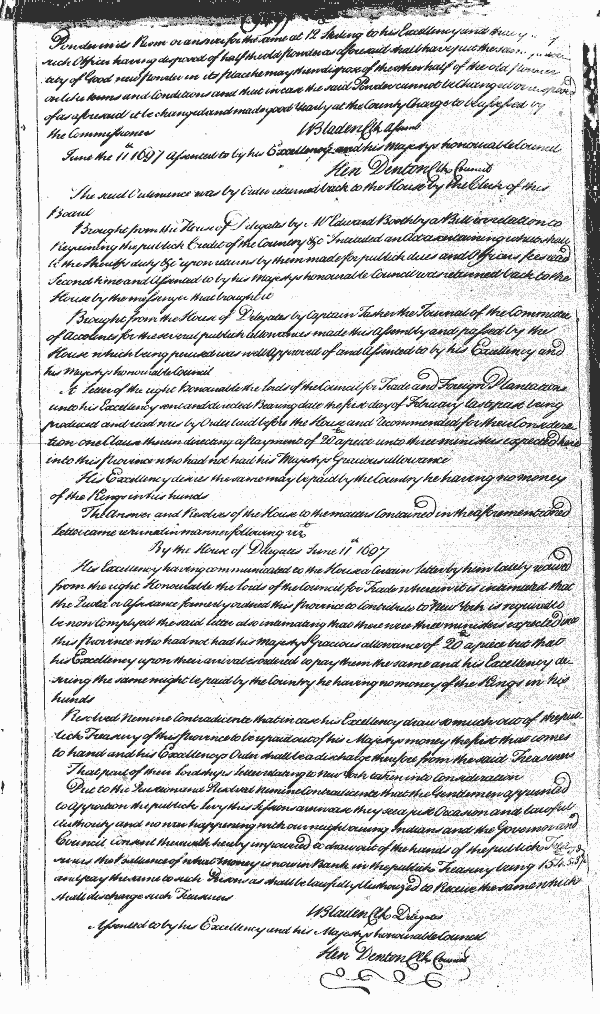 Powder in its Room or answer for the same at 12 sterling to his Excellency and
such Officer having disposed of half the old powder as aforesaid shall have put the same
ity of Good new powder in its place may then dispose of the other half of the old powder
on like terms and Conditions and that in case the said Powder cannot be Changed or disposed
of as aforesaid it be changed and made good Yearly at the County Charge to be assessed by
the Commissioners
WBladen Clk Assem
June the 11th 1697 Assented to by his Excellency and his Majestys honourable Council
Hen Denton Clk Council
The said Ordinance was by Order returned back to the House by the Clerk of this
Board
Brought from the House of Delegates by Mr Edward Boothby a Bill in relation to
Repairing the publick Credit of the Country &c Intituled an Act ascertaining what shall
be the Sheriffs duty &c upon returns by them made for publick dues and Officers fees read
Second time and Assented to by his Majestys honourable Council was returned back to the
House by the messenger that brought it
Brought from the House of Delegates by Captain Tasker the Journal of the Committee
of Accounts for the several publick allowances made this Assembly and passed by the
House which being perused was well Approved of and Assented to by his Excellency and
his Majestys honourable Council
A Letter of the right Honourable the lords of the Council for Trade and Foreign Plantations
unto his Excellency sent and directed Bearing date the first day of February last past being
produced and read was by Order laid before the House and Recommended for their Considera
tion one Clause therein directing a payment of 20 a peice unto three ministers expected here
into this Province who had not had his Majestys Gracious allowance
His Excellency desires the same may be paid by the Country he having no money
of the Kings in his hands
The Answer and Resolves of the House to the matters Contained in the aforementioned
letter came we read in manner following vizt
By the House of Delegates June 11th 1697
His Excellency having communicated to the House a Certain letter by him lately received
from the right Honourable the lords of the Council for Trade wherein it is intimated that
the Quota or Assistance formerly ordered this Province to Contribute to New York is required to
be now Complyed the said letter also intimating that there were three ministers expected into
this Province who had not had his Majestys Gracious allowance of 20 a peice but that
his Excellency upon their arrival is ordered to pay them the same and his Excellency de
siring the same might be paid by the Country he having no money of the Kings in his
hands
Resolved Nemine Contradicente that in case his Excellency draw so much out of the pub
lick Treasury of this province to be repaid out of his Majestys money the first that comes
to hand and his Excellencys Order shall be a discharge therefore from the said Treasurers
That part of their lordships letter relating to New York taken into Consideration
Put to the Resolved Nemine Contradicente that the Gentlemen appointed
to apportion the publick levy this Sessions are in case they see a just Occasion and lawfull
Authority and no war happening with our neighbouring Indians and the Governor and
Council consent thereunto hereby impowered to draw out of the hands of the publick
surers the Ballance of what money is now in Bank in the publick Treasury being
and pay the same to such Persons as shall be lawfully Authorized to Receive the same which
shall discharge such Treasurers
WBladen Clk Delegates
Assented to by his Excellency and his Majestys honourable Council
Hen Denton Clk Council